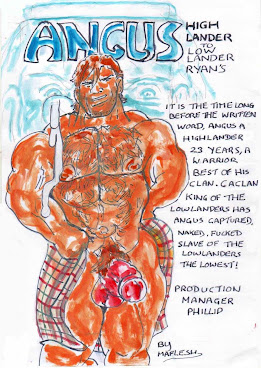 ANGUS
HIGH
LANDER
TO
LOW
LANDER
RYAN'S
IT IS THE TIME LONG
BEFORE THE WRITTEN
WORD, ANGUS A
HIGHLANDER
23 YEARS, A
WARRIOR
BEST OF HIS
CLAN. CACLAN
KING OF THE
LOWLANDERS HAS
ANGUS CAPTURED,
NAKED, FUCKED
SLAVE OF THE
LOWLANDERS
THE LOWEST!
PRODUCTION
MANAGER
PHILLIP
BY
MARLESH